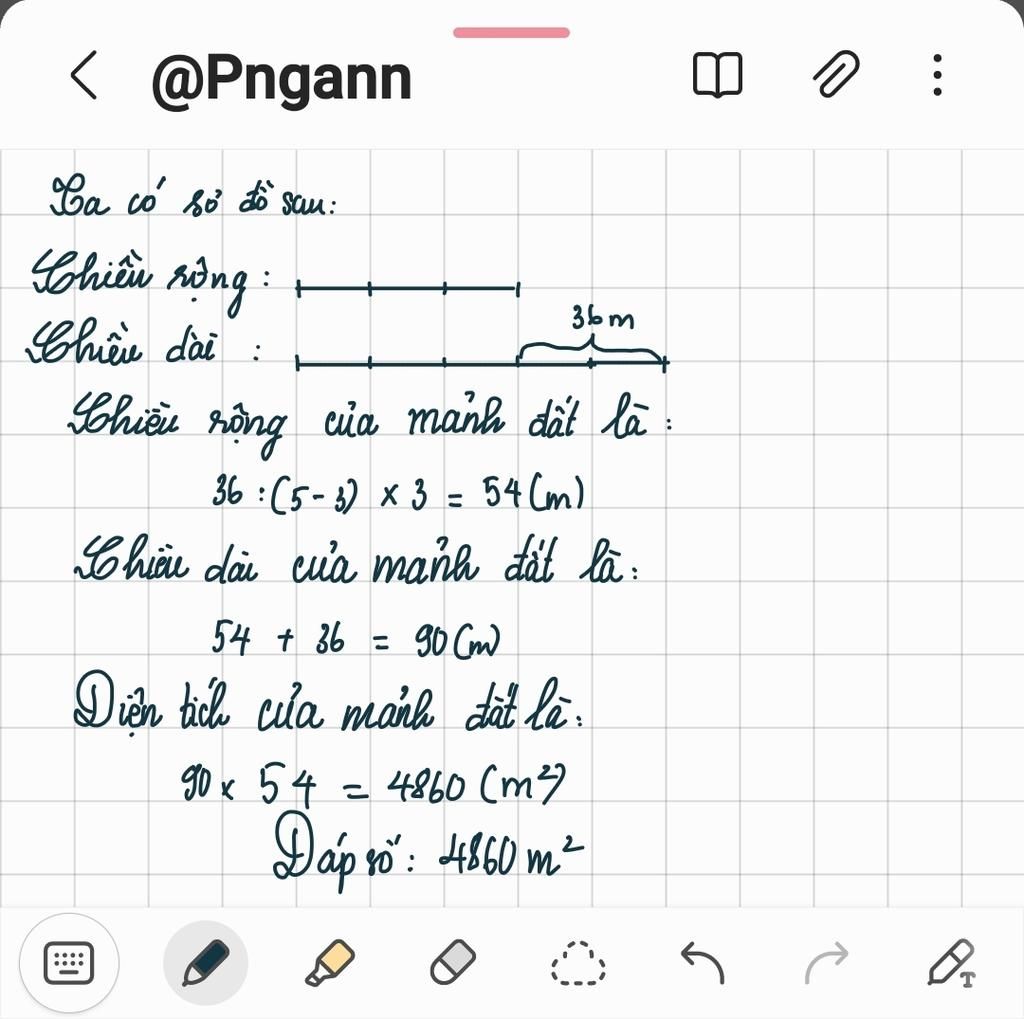 @Pngann
Ta có sơ đồ sau:
Chiều rộng :
36 m
Chiều dài :
Chiều rộng của mảnh đất là :
36 : (5 - 3) × 3 = 54 (m)
Chiều dài của mảnh đất là :
54 + 36 = 90 (m)
Diện tích của mảnh đất là :
90 × 54 = 4860 (m²)
Đáp số : 4860 m²
T